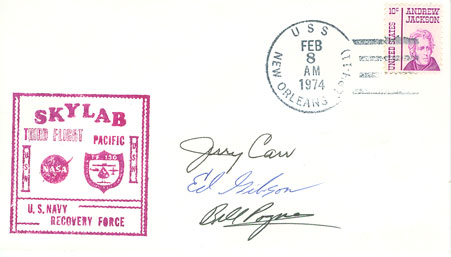 USS
NEW ORLEANS (LPH-11)
FEB
8
AM
1974
10c
ANDREW
JACKSON
UNITED STATES
SKYLAB
THIRD FLIGHT
PACIFIC
USN
NASA
TF 130
USN
U.S. NAVY
RECOVERY FORCE
Jerry Carr
Ed Gibson
Bill Pogue